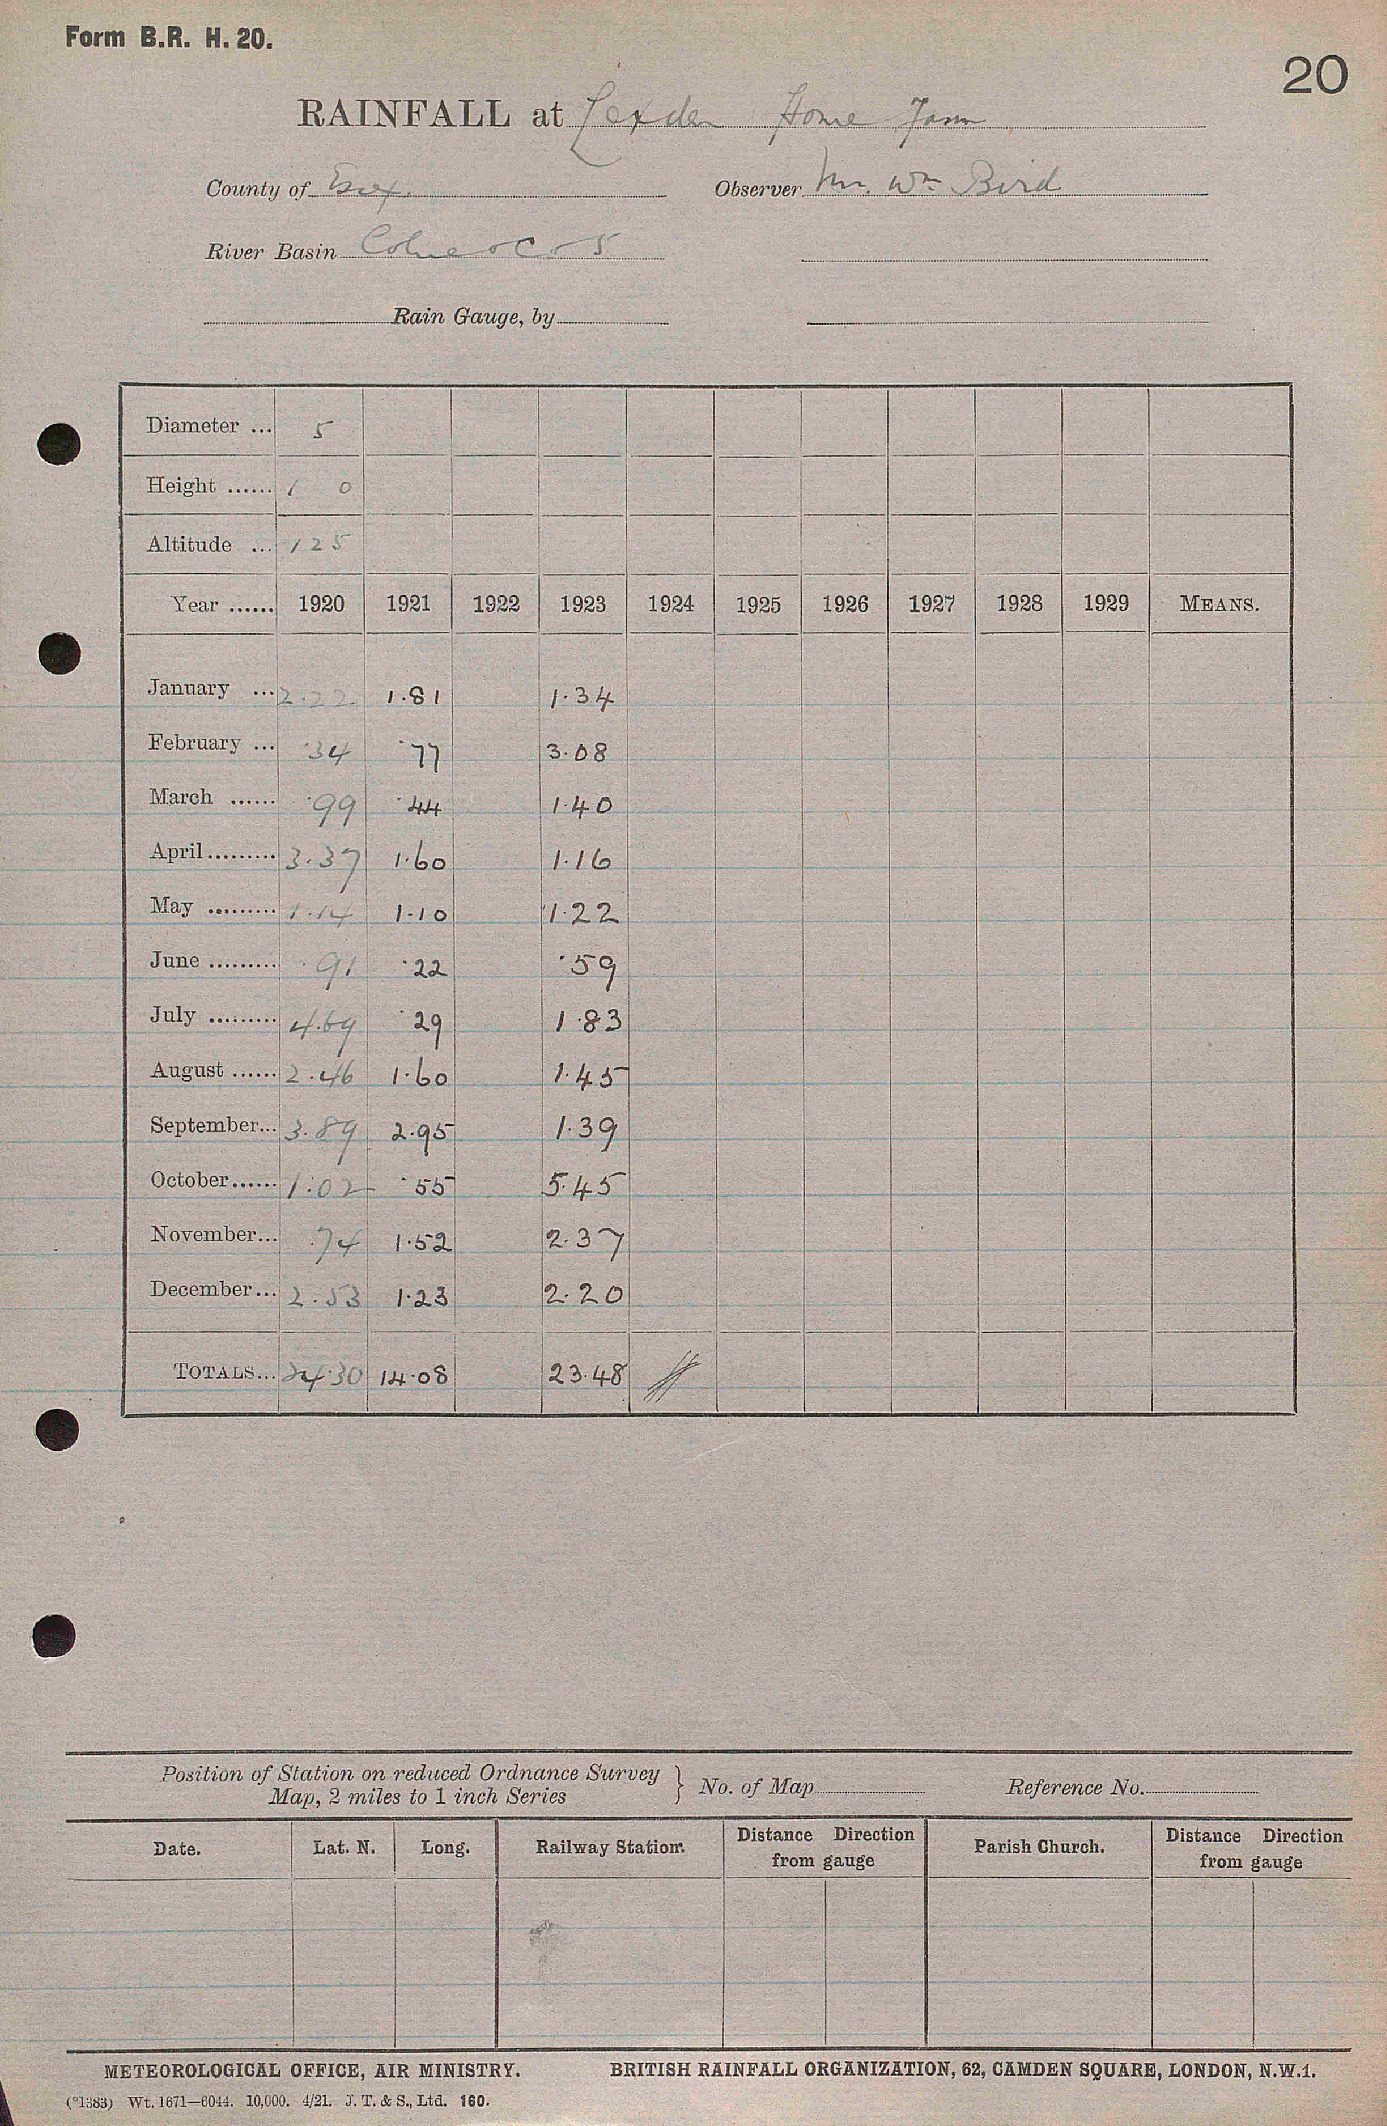 Form B.R. H. 20.
20
RAINFALL at Lexden Home Farm
County of Essex Observer Mr. Wm Bird
River Basin Colne
Rain Gauge, by
Diameter ... 5
Height ...... 1 0
Altitude ... 125
Year ...... 1920 1921 1922 1923 1924 1925 1926 1927 1928 1929 MEANS.
January ... 2.22 1.81 1.34
February ... .34 .77 3.08
March ...... .99 .44 1.40
April ......... 3.37 1.60 1.16
May ......... 1.14 1.10 1.22
June ......... .91 .22 .59
July ......... 4.69 .29 1.83
August ...... 2.46 1.60 1.45
September... 3.89 2.95 1.39
October ...... 1.02 .55 5.45
November... .74 1.52 2.37
December... 2.53 1.23 2.20
TOTALS... 24.30 14.08 23.48
Position of Station on reduced Ordnance Survey
Map, 2 miles to 1 inch Series } No. of Map Reference No.
Date. Lat. N. Long. Railway Station. Distance Direction from gauge Parish Church. Distance Direction from gauge
METEOROLOGICAL OFFICE, AIR MINISTRY. BRITISH RAINFALL ORGANIZATION, 62, CAMDEN SQUARE, LONDON, N.W.1.
(*1383) Wt. 1671—6044. 10,000. 4/21. J. T. & S., Ltd. 160.